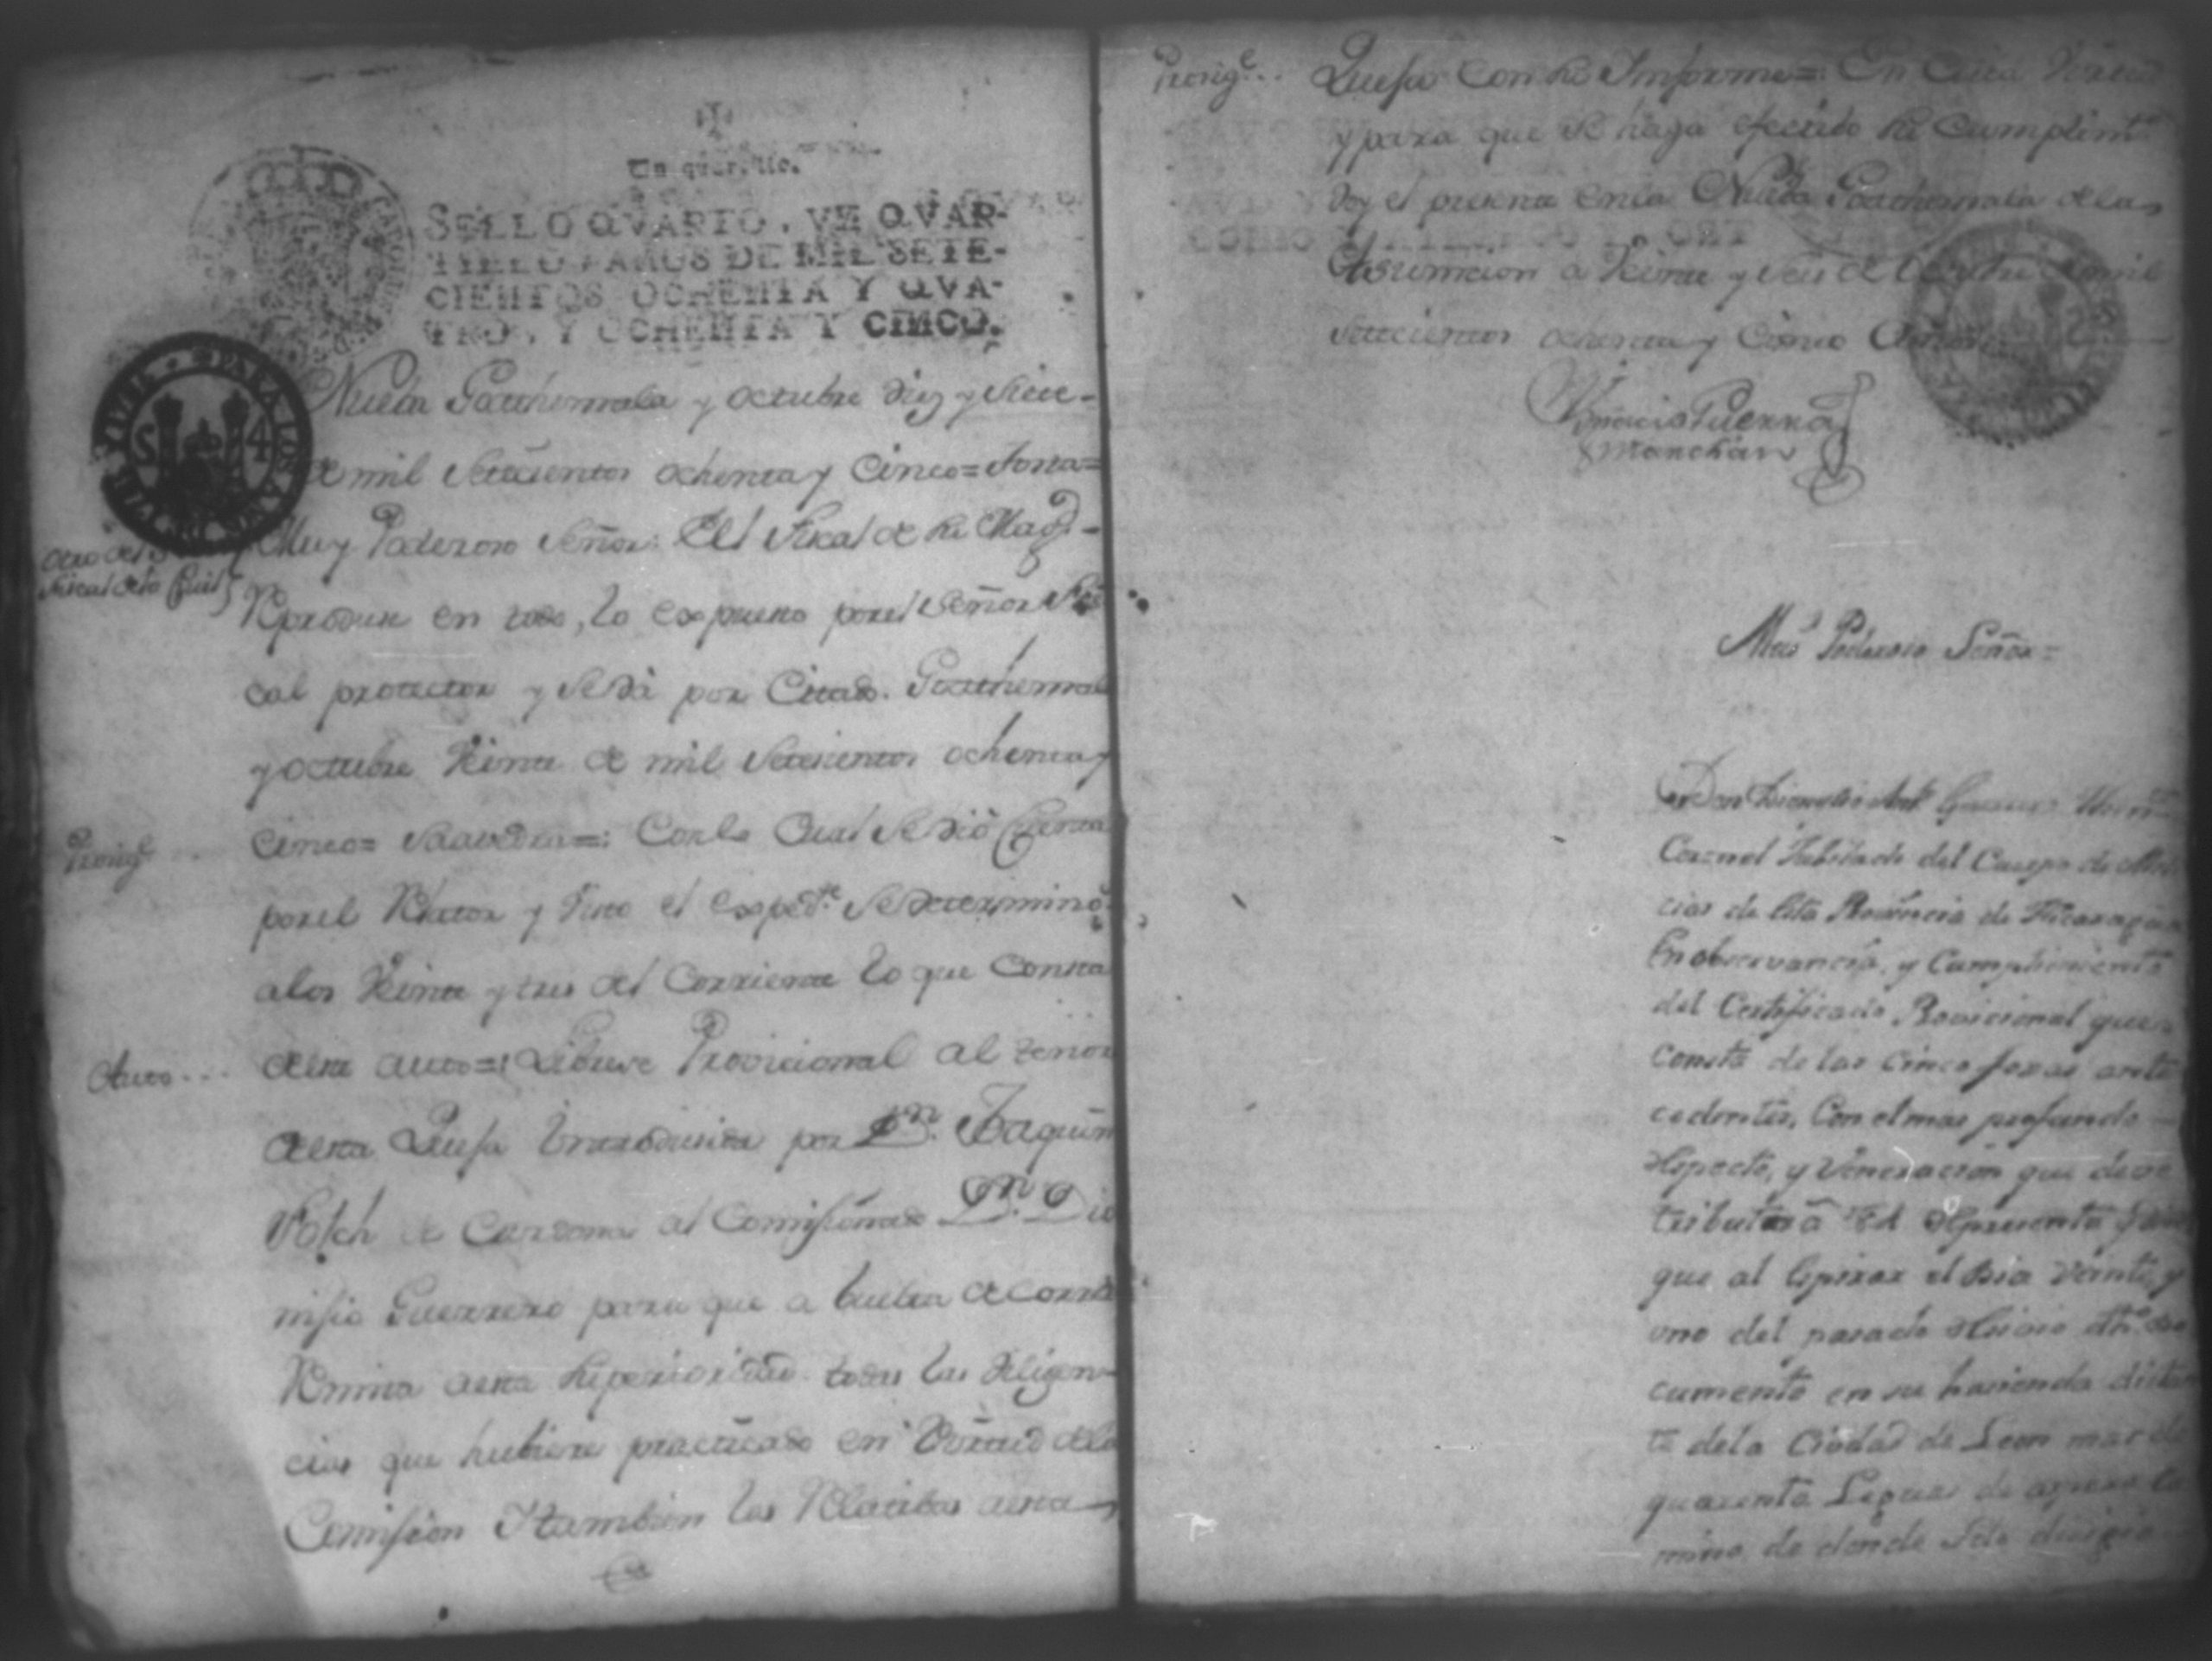 Un quartillo.
SELLO QVARTO, VN QVAR-
TILLO, AÑOS DE MIL SETE-
CIENTOS OCHENTA Y QVA-
TRO, Y OCHENTA Y CINCO.
Nueba Goathemala y octubre diez y siete
de mil setecientos ochenta y cinco=
otro del S.
Fiscal de lo Civil
Muy Poderoso Señor: El Fiscal de su Mag.d
Reproduse en todo, lo expuesto por el Señor Fis
cal protector y se dá por Citado. Goathemala
y octubre veinte de mil setecientos ochenta y
Prosigue
cinco= Saavedra=: Con lo Cual se dió Cuenta
por el Relator y visto el exped.te se determinó
a los veinte y tres del Corriente lo que Consta
Auto...
de este auto=: Librese Provicional al tenor
de esta Quefa Introdusida por D.n Joaquin
Folch de Cardona al Comisionado D.n Dio
nisio Guerrero para que a buelta de correo
Remita a esta Superioridad todas las Diligen
cias que hubiere practicado en Virtud de la
Comision Y tambien las Relatibas a esta
Prosigue..
Quefa con su Informe=: En Cuia Virtud
y para que se haga efectibo su Cumplimt.o
doy el presente en la Nueba Goathemala de la
Asumcion a veinte y seis de Octubre de mil
setecientos ochenta y Cinco Años.
Ygnacio Guerra
y Marchán
Mui Poderoso Señor=
Don Dionisio Ant.o Guerrero
Coronel Jubilado del Cuerpo de Mili
cias de esta Provincia de Nicaragua
En observancia, y Cumplimiento
del Certificado Provicional que
consta de las cinco foxas ante
cedentes, Con el mas profundo
respecto, y Veneracion que deve
tributar a representa
que al espirar el Dia Veinte y
uno del pasado
cumento en su hacienda distan
te de la Ciudad de Leon mas de
quarenta Leguas de aspero ca
mino de donde